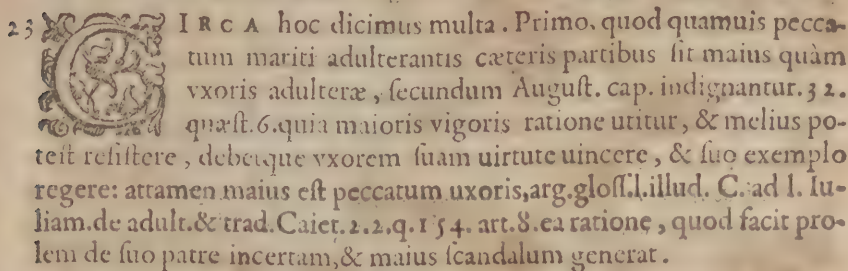 23 CIRCA hoc dicimus multa. Primo, quod quamuis pecca-
tum mariti adulterantis cæteris partibus ſit maius quàm
vxoris adulteræ, ſecundum Auguſt. cap. indignantur. 32.
quæſt. 6. quia maioris vigoris ratione utitur, & melius po-
teſt reſiſtere, debetque vxorem ſuam uirtute uincere, & ſuo exemplo
regere: attamen maius eſt peccatum uxoris, arg. gloſſ. l. illud. C. ad l. Iu-
liam. de adult. & trad. Caiet. 2. 2. q. 154. art. 8. ea ratione, quod facit pro-
lem de ſuo patre incertam, & maius ſcandalum generat.